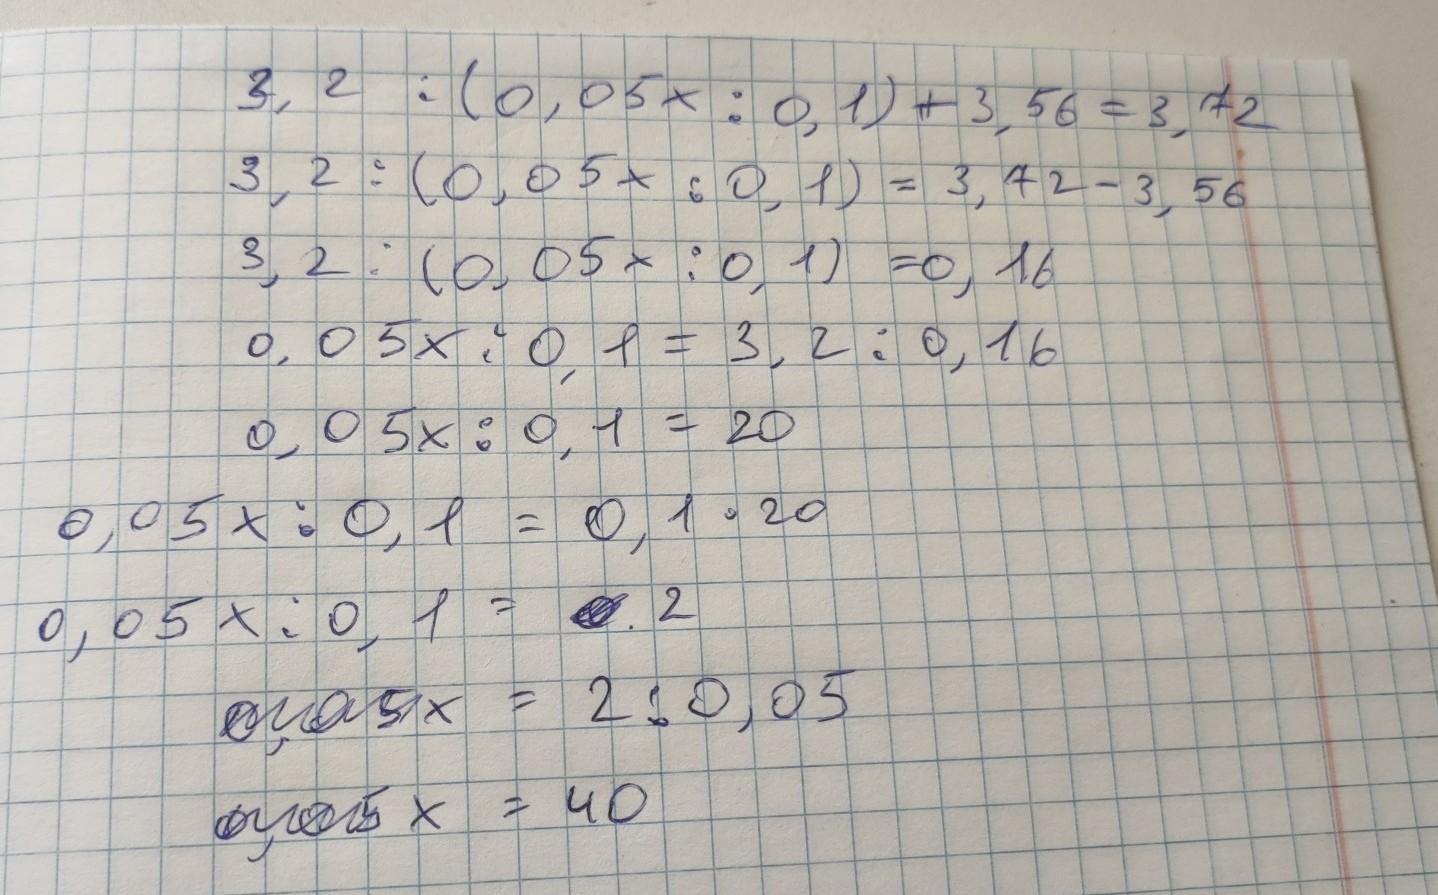 3,2 : (0,05x : 0,1) + 3,56 = 3,72
3,2 : (0,05x : 0,1) = 3,72 - 3,56
3,2 : (0,05x : 0,1) = 0,16
0,05x : 0,1 = 3,2 : 0,16
0,05x : 0,1 = 20
0,05x : 0,1 = 0,1 · 20
0,05x : 0,1 = 2
x = 2 : 0,05
x = 40